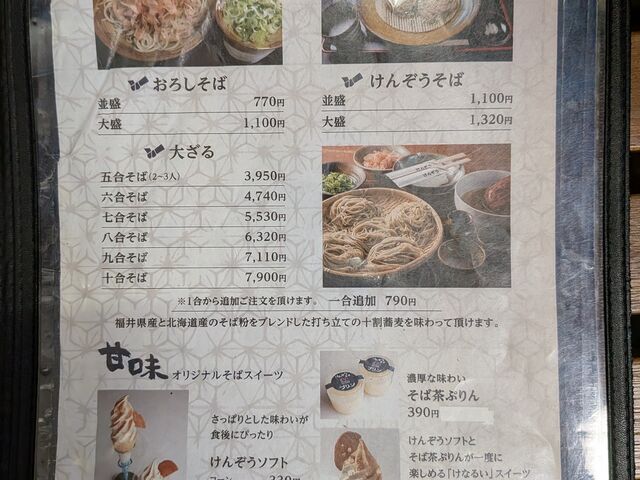 おろしそば
並盛 770円
大盛 1,100円
けんぞうそば
並盛 1,100円
大盛 1,320円
大ざる
五合そば(2~3人) 3,950円
六合そば 4,740円
七合そば 5,530円
八合そば 6,320円
九合そば 7,110円
十合そば 7,900円
※1合から追加ご注文を頂けます。 一合追加 790円
福井県産と北海道産のそば粉をブレンドした打ち立ての十割蕎麦を味わって頂けます。
甘味 オリジナルそばスイーツ
さっぱりとした味わいが
食後にぴったり
けんぞうソフト
コーン 330円
濃厚な味わい
そば茶ぷりん
390円
けんぞうソフトと
そば茶ぷりんが一度に
楽しめる「けなるい」スイーツ